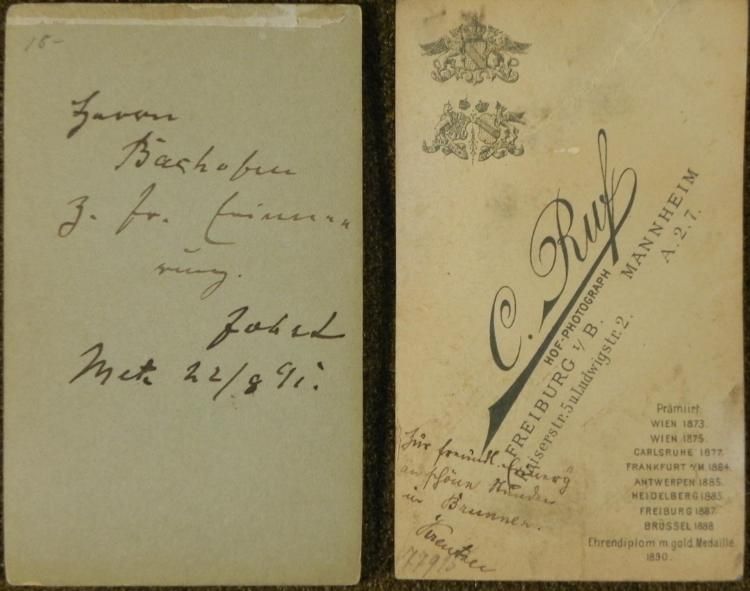 18-
Herrn
Bachofen
z. fr. Erinne
rung.
Metz 22/8 91.
C. Ruf
HOF-PHOTOGRAPH
FREIBURG i/B.
Kaiserstr. 5 u Ludwigstr. 2.
MANNHEIM
A. 2. 7.
Prämiirt
WIEN 1873.
WIEN 1875.
CARLSRUHE 1877.
FRANKFURT a/M 1884.
ANTWERPEN 1885.
HEIDELBERG 1885.
FREIBURG 1887.
BRÜSSEL 1888
Ehrendiplom m. gold. Medaille
1890.
Zur freundl. Erinnerg
an schöne Stunden
in Brunnen.